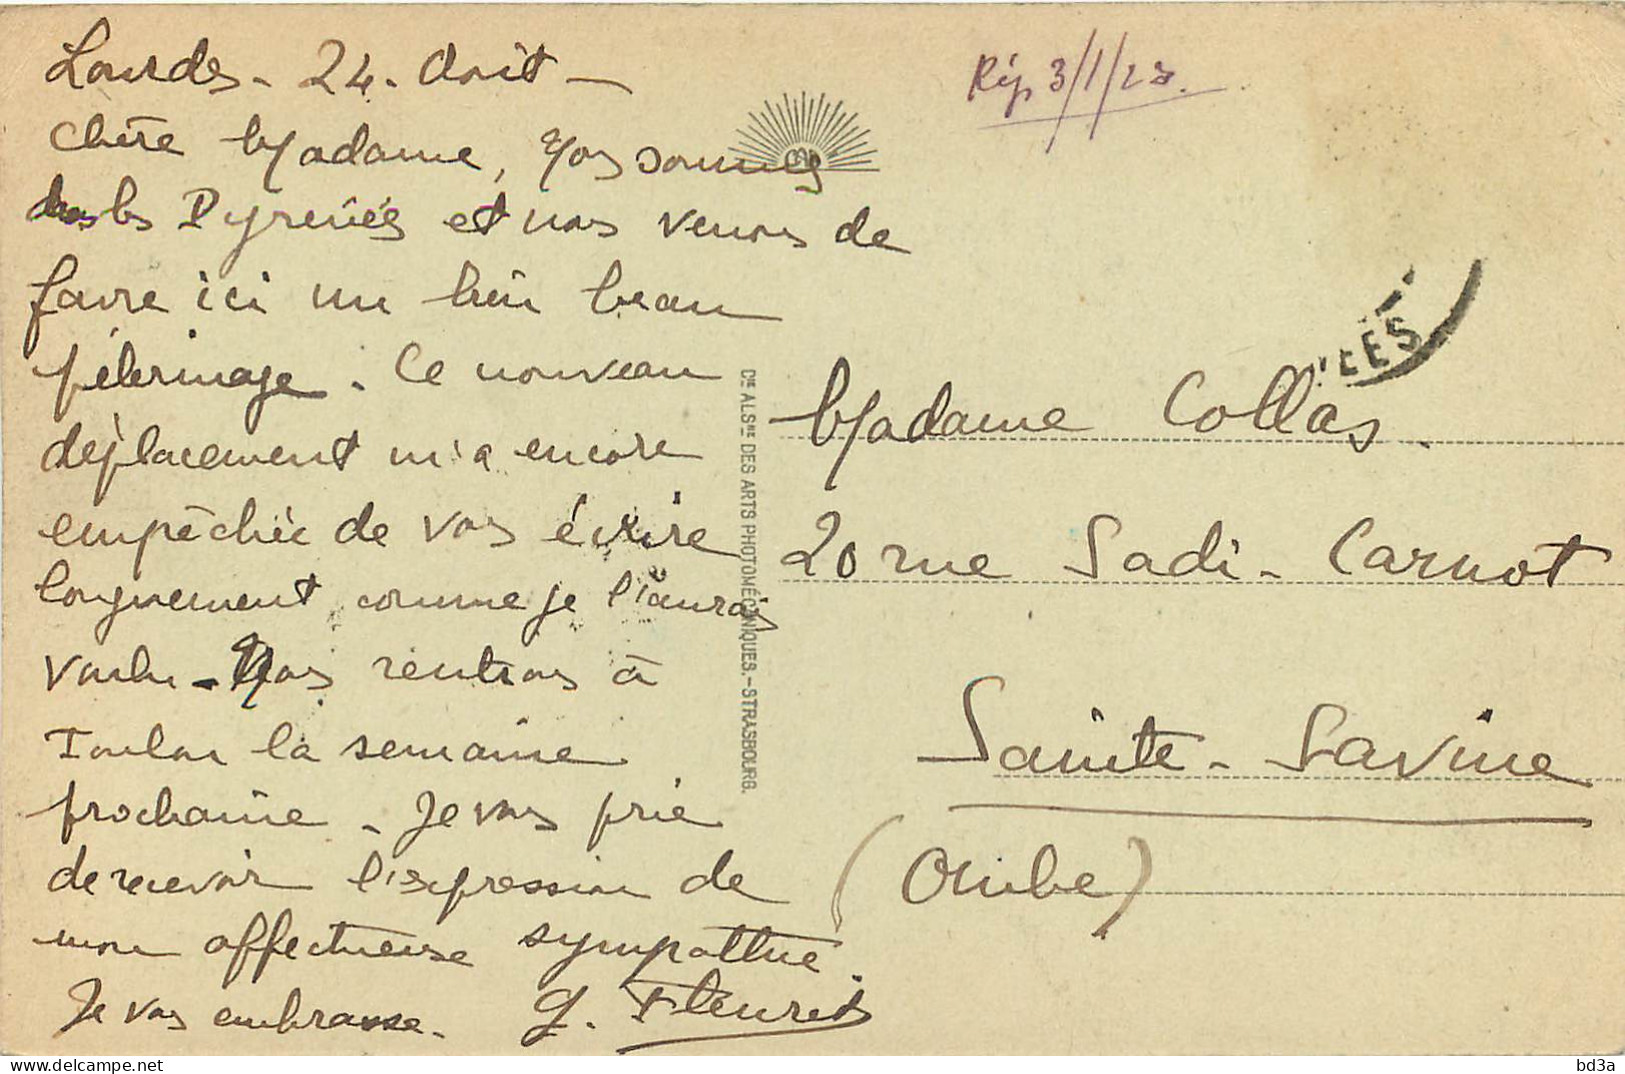 Lourdes - 24 - Août -
Chère Madame, Nous sommes
dans les Pyrénées et nous venons de
faire ici un bien beau
pèlerinage. Ce nouveau
déplacement m'a encore
empêchée de vous écrire
longuement comme je l'aurais
voulu - Nous rentrons à
Toulon la semaine
prochaine - Je vous prie
de recevoir l'expression de
mon affectueuse sympathie.
Je vous embrasse. G.
Rép 3/1/23.
CIE ALSNE DES ARTS PHOTOMÉCANIQUES. - STRASBOURG.
ÉES
Madame Collas.
20 rue Sadi - Carnot
Sainte - Savine
(Aube)
bd3a